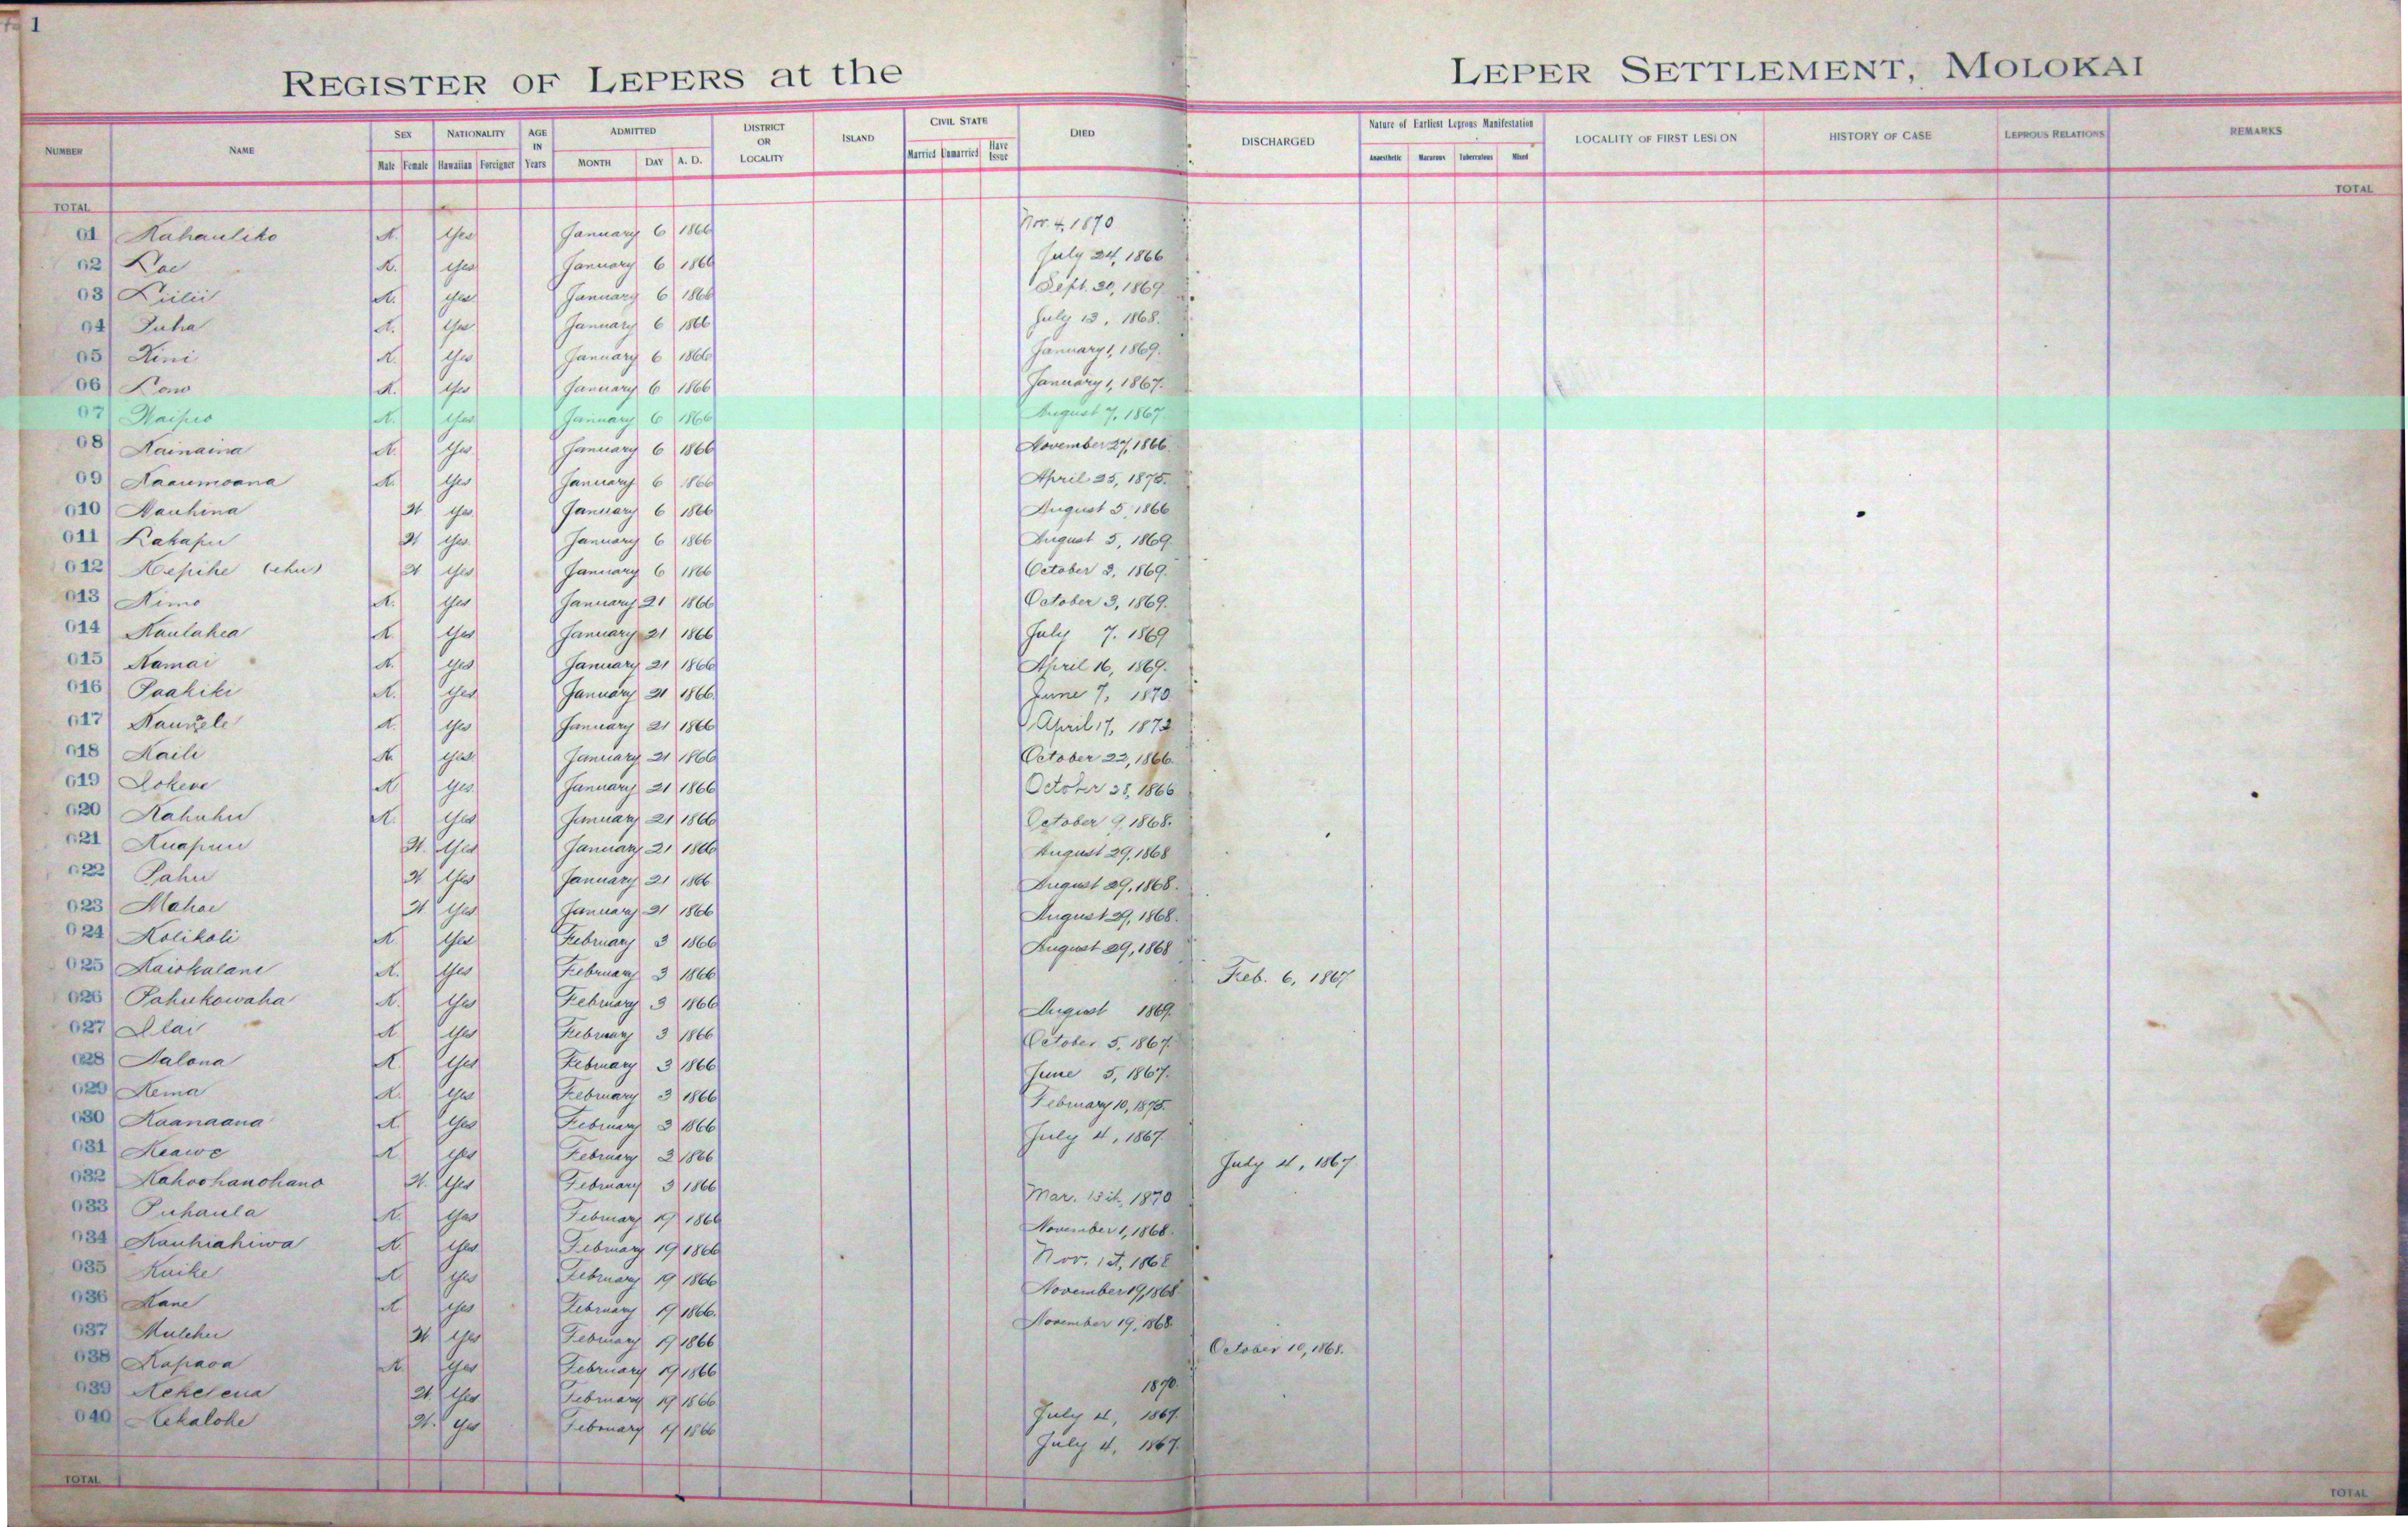 1
REGISTER OF LEPERS at the LEPER SETTLEMENT, MOLOKAI
NUMBER NAME SEX NATIONALITY AGE IN Years ADMITTED DISTRICT OR LOCALITY ISLAND CIVIL STATE DIED DISCHARGED Nature of Earliest Leprous Manifestation LOCALITY OF FIRST LESION HISTORY OF CASE LEPROUS RELATIONS REMARKS
Male Female Hawaiian Foreigner MONTH DAY A. D. Married Unmarried Have Issue Anaesthetic Macurous Tuberculous Mixed
TOTAL TOTAL
01 Kahauliko K. Yes January 6 1866 Nov. 4, 1870
02 Kae K. Yes January 6 1866 July 24, 1866
03 Liilii K. Yes January 6 1866 Sept. 30, 1869.
04 Puha K. Yes January 6 1866 July 13, 1868.
05 Kini K. Yes January 6 1866 January 1, 1869.
06 Lono K. Yes January 6 1866 January 1, 1867.
07 Waipio K. Yes January 6 1866 August 7, 1867
08 Kainaina K. Yes January 6 1866 November 27, 1866.
09 Kaaumoana K. Yes January 6 1866 April 25, 1875.
010 Nauhina W Yes January 6 1866 August 5, 1866
011 Lakapu W Yes January 6 1866 August 5, 1869.
012 Kepihe (ehu) W Yes January 6 1866 October 2, 1869.
013 Kimo K. Yes January 21 1866 October 3, 1869.
014 Kaulahea K. Yes January 21 1866 July 7. 1869
015 Kamai K. Yes January 21 1866 April 16, 1869.
016 Paakiki K. Yes January 21 1866 June 7, 1870
017 Yes January 21 1866 April 17, 1872
018 Kaili K. Yes January 21 1866 October 22, 1866.
019 Lokene K Yes January 21 1866 October 28, 1866
020 Kahuhu K. Yes January 21 1866 October 9, 1868.
021 Kuapuu W. Yes January 21 1866 August 29, 1868
022 Pahu W Yes January 21 1866 August 29, 1868.
023 Mahoe W Yes January 21 1866 August 29, 1868.
024 Kolikoli K Yes February 3 1866 August 29, 1868
025 Kaiokalani K. Yes February 3 1866 Feb. 6, 1867
026 Pahukowaha K. Yes February 3 1866 August 1869.
027 Ilai K Yes February 3 1866 October 5, 1867.
028 Kalana K. Yes February 3 1866 June 5, 1867.
029 Kema K. Yes February 3 1866 February 10, 1875.
030 Kaanaana K Yes February 3 1866 July 4, 1867.
031 Keawe K Yes February 3 1866 July 4, 1867
032 Kahoohanohano W. Yes February 3 1866 Mar. 1870
033 Puhaula K. Yes February 19 1866 November 1, 1868.
034 Kauhiahiwa K. Yes February 19 1866 Nov. 1st, 1868
035 Kaike K Yes February 19 1866 November 19, 1868
036 Kane K Yes February 19 1866. November 19, 1868.
037 Mulehu W Yes February 19 1866 October 10, 1868.
038 Kapaoa K. Yes February 19 1866 1870.
039 Kekelena W. Yes February 19 1866 July 4, 1867.
040 Kekalohe W. Yes February 19 1866 July 4, 1867.
TOTAL TOTAL